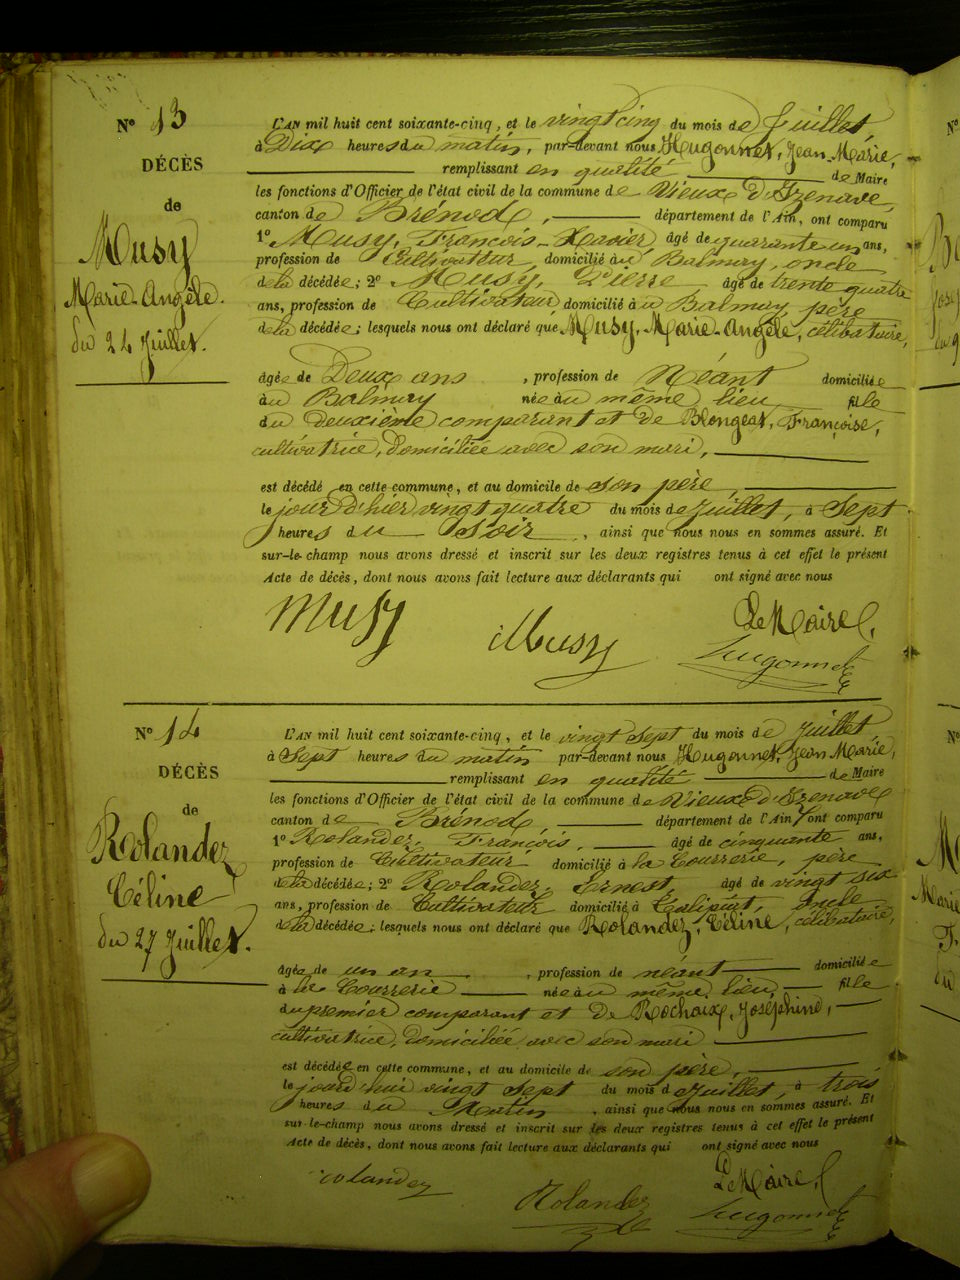 N° 13
DÉCÈS
de
Musy
Marie-Angèle.
du 24 Juillet.
L'AN mil huit cent soixante-cinq, et le vingt cinq du mois de Juillet
à Dix heures du matin, par-devant nous Hugonnet, Jean-Marie,
remplissant en qualité de Maire
les fonctions d'Officier de l'état civil de la commune de Vieux d'Izenave,
canton de Brénod, département de l'Ain, ont comparu
1° Musy, François-Xavier, âgé de quarante un ans,
profession de Cultivateur domicilié au Balmay, oncle
de la décédée; 2° Musy, Pierre âgé de trente quatre
ans, profession de Cultivateur domicilié au Balmay, père
de la décédée; lesquels nous ont déclaré que Musy, Marie-Angèle, célibataire,
âgée de Deux ans, profession de Néant domiciliée
au Balmay née au même lieu fille
du deuxième comparant et de Blongeat, Françoise,
cultivatrice, domiciliée avec son mari,
est décédé en cette commune, et au domicile de son père,
le jour d'hier vingt quatre du mois de Juillet, à Sept
heures du Soir, ainsi que nous nous en sommes assuré. Et
sur-le-champ nous avons dressé et inscrit sur les deux registres tenus à cet effet le présent
Acte de décès, dont nous avons fait lecture aux déclarants qui ont signé avec nous
Musy Musy Le Maire,
Hugonnet
N° 14
DÉCÈS
de
Rolandez
Céline
du 27 Juillet.
L'AN mil huit cent soixante-cinq, et le vingt sept du mois de Juillet
à Sept heures du matin par-devant nous Hugonnet, Jean Marie,
remplissant en qualité de Maire
les fonctions d'Officier de l'état civil de la commune de Vieux d'Izenave
canton de Brénod département de l'Ain, ont comparu
1° Rolandez, François, âgé de cinquante ans,
profession de Cultivateur domicilié à la Courrerie, père
de la décédée; 2° Rolandez, Ernest, âgé de vingt six
ans, profession de Cultivateur domicilié à oncle
de la décédée; lesquels nous ont déclaré que Rolandez, Céline, célibataire,
âgée de un an, profession de néant domiciliée
à la Courrerie née au même lieu, fille
du premier comparant et de Rochaix, Joséphine,
cultivatrice, domiciliée avec son mari
est décédée en cette commune, et au domicile de son père,
le jourd'hui vingt sept du mois de Juillet, à trois
heures du Matin, ainsi que nous nous en sommes assuré. Et
sur-le-champ nous avons dressé et inscrit sur les deux registres tenus à cet effet le présent
Acte de décès, dont nous avons fait lecture aux déclarants qui ont signé avec nous
rolandez Rolandez Le Maire,
Hugonnet